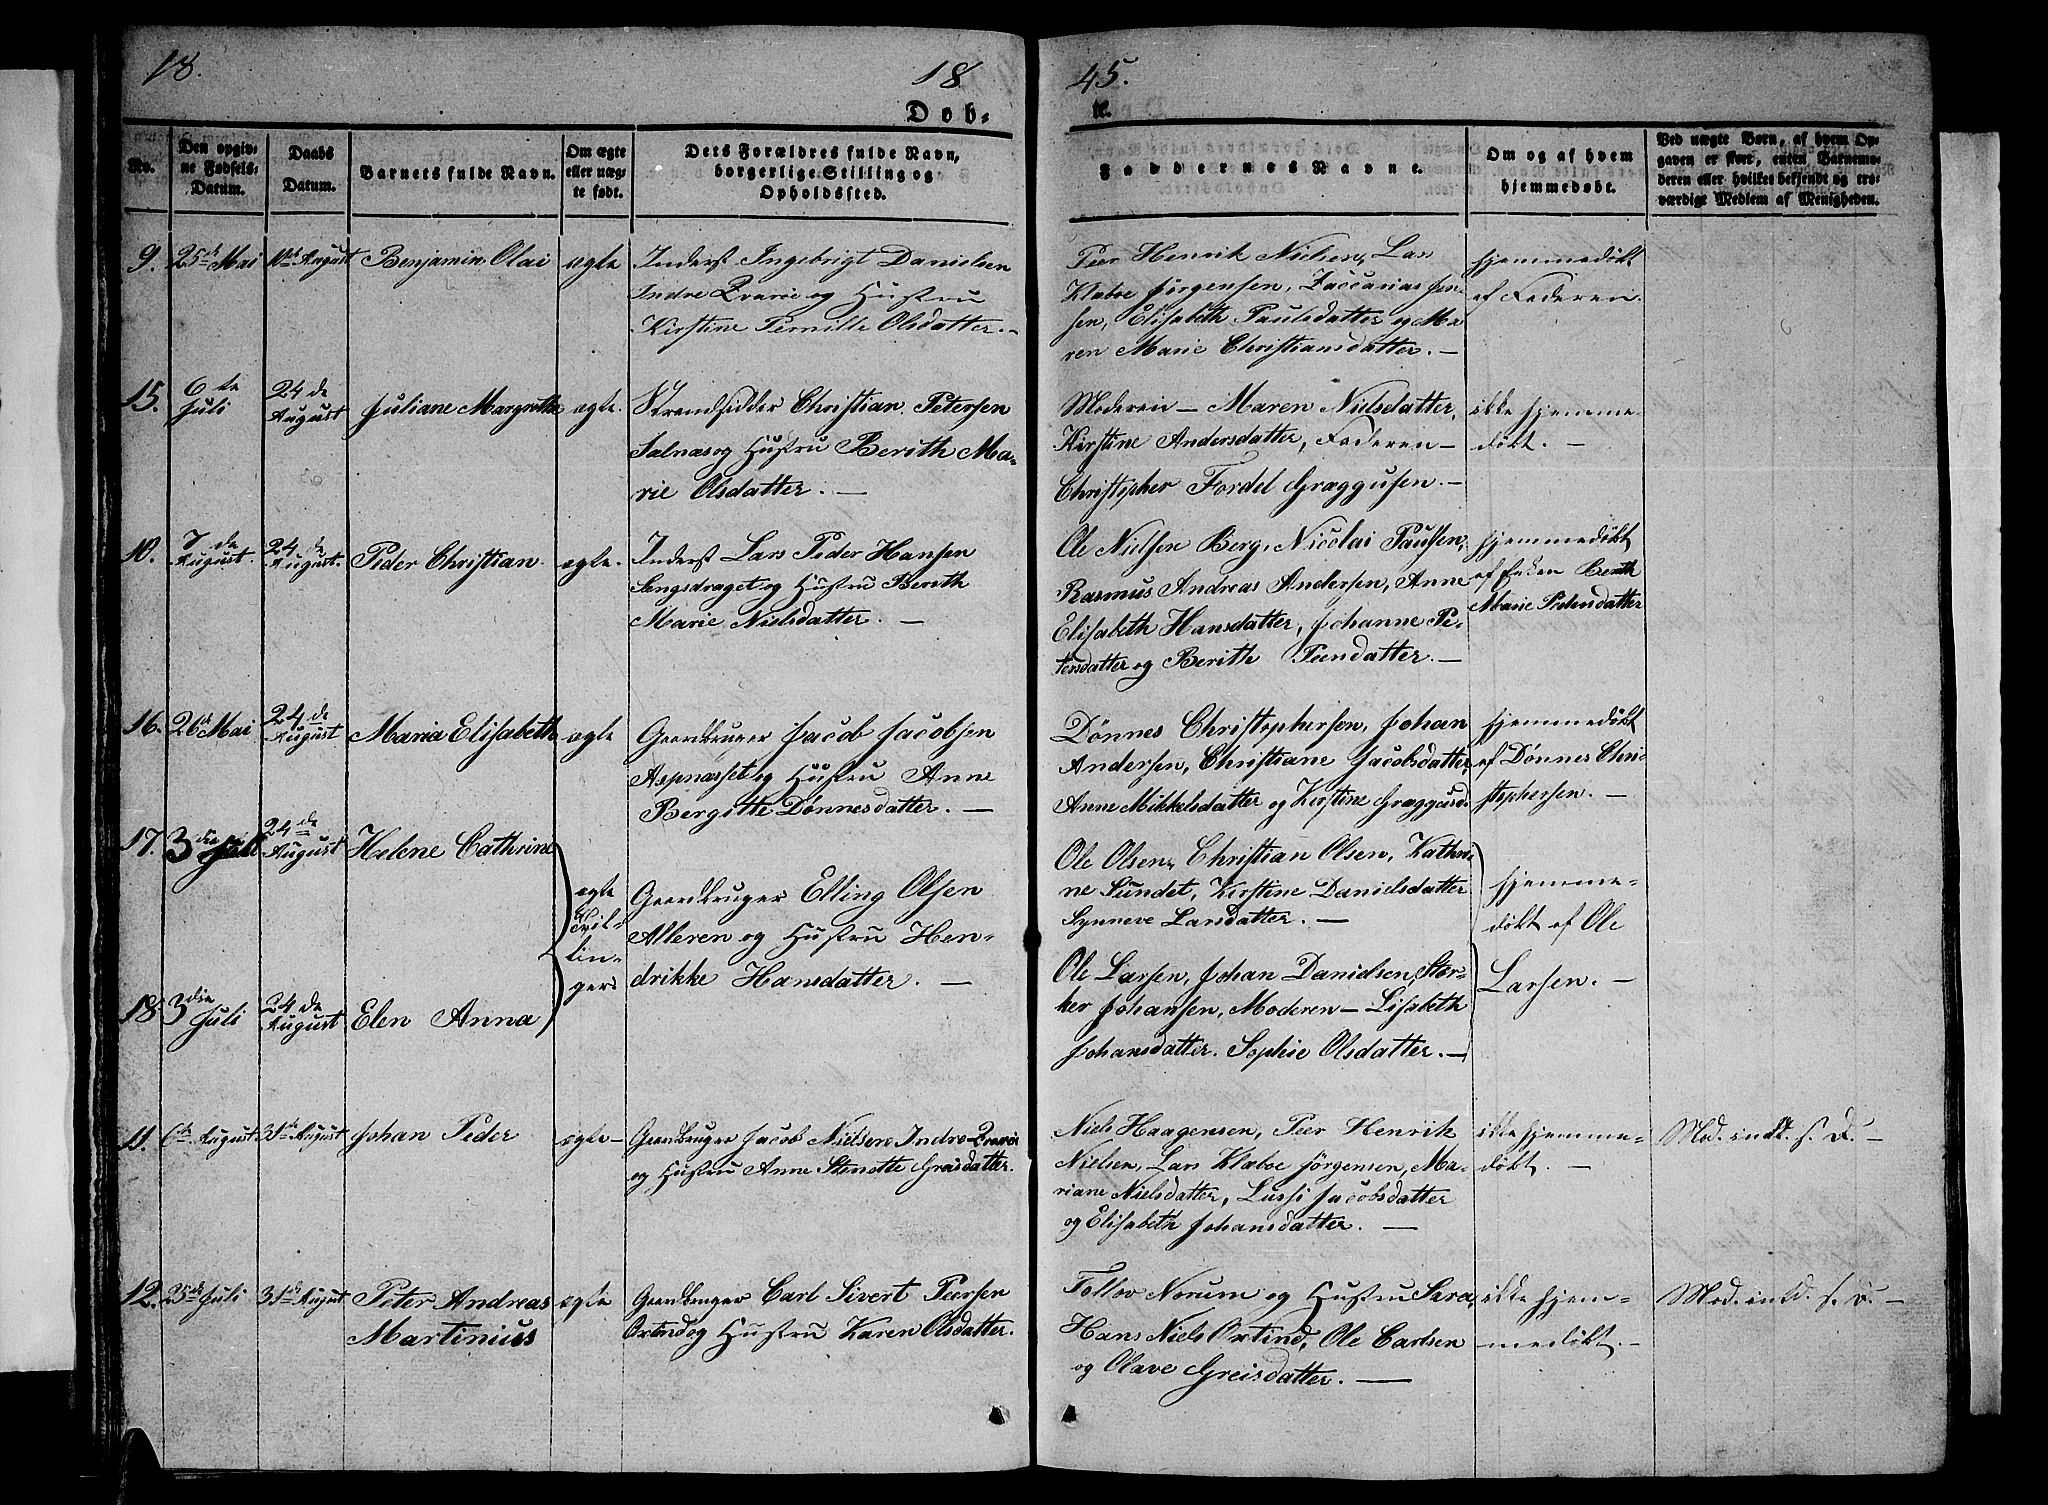 18.
18
45.
Dob-
te.
No.
Den opgiv-
ne Fødsels-
Datum.
Daabs
Datum.
Barnets fulde Navn.
Om ægte
eller uæg-
te født.
Dets Forældres fulde Navn,
borgerlige Stilling og
Opholdssted.
Faddernes Navne.
Om og af hvem
hjemmedøbt.
Ved uægte Børn, af hvem Op-
gaven er skeet, enten Barnemo-
deren eller hvilket bekjendt og tro-
værdigt Medlem af Menigheden.
9. 25de Mai 10de August Benjamin Olai ægte Inderst Ingebrigt Danielsen
Indre Qvarøe og Hustru
Kirstine Pernille Olsdatter. —
Peer Henrik Nielsen, Lars
Klæboe Jörgensen, Zaccarias Jen-
sen, Elisabeth Paulsdatter og Ma-
ren Marie Christiansdatter. —
hjemmedøbt
af Faderen.
15. 6te Juli 24de August Juliane Margrethe ægte. Strandsidder Christian Petersen
Sælnæs og Hustru Berith Ma-
rie Olsdatter. —
Moderen — Maren Nielsdatter,
Kirstine Andersdatter, Faderen —
Christopher Fordel Græggusen. —
ikke hjemme-
døbt. —
10. 7de August 24de August. Peder Christian ægte. Inderst Lars Peder Hansen
Sengsdraget og Hustru Berith
Marie Nielsdatter. —
Ole Nielsen Berg, Nicolai Paulsen,
Rasmus Andreas Andersen, Anne
Elisabeth Hansdatter, Johanne Pe-
tersdatter og Berith Peersdatter. —
hjemmedøbt
af Enken Berith
Marie Pedersdatter
16. 26de Mai 24de August Maria Elisabeth ægte Gaardbruger Jacob Jacobsen
Aspnæsset og Hustru Anne
Bergitte Dønnesdatter. —
Dønnes Christophersen, Johan
Andersen, Christiane Jacobsdatter,
Anne Mikkelsdatter og Kirstine Græggusd.
hjemmedøbt
af Dønnes Chri-
stophersen. —
17. 3die Juli 24de August Helene Cathrine
ægte
Tvil-
lin-
gers
Gaardbruger Elling Olsen
Alteren og Hustru Hen-
drikke Hansdatter. —
Ole Olsen, Christian Olsen, Kathri-
ne Sundet, Kirstine Danielsdatter
Synneve Larsdatter. —
hjemme-
døbt af Ole
Larsen. —
18. 3die Juli 24de August Elen Anna
Ole Larsen, Johan Danielsen, Stor-
ker Johansen, Moderen — Lisabeth
Johansdatter. Sophie Olsdatter. —
11. 6te August 31te August Johan Peder ægte — Gaardbruger Jacob Nielsen Indre-Qvarøe
og Hustru Anne Stinette Greisdatter.
Niels Haagensen, Peer Henrik
Nielsen, Lars Klæboe Jörgensen, Ma-
riane Nielsdatter, Lussi Jacobsdatter
og Elisabeth Johansdatter. —
ikke hjemme-
døbt. —
Mod. indt. s. D. —
12. 25de Juli 31te August Peter Andreas
Martinius
ægte Gaardbruger Carl Sivert Peersen
Oxtind og Hustru Karen Olsdatter.
Folløv Norum og Hustru Sara,
Hans Niels Oxtind, Ole Carlsen
og Olave Greisdatter. —
ikke hjem-
medøbt. —
Mod. intd. s. D. —